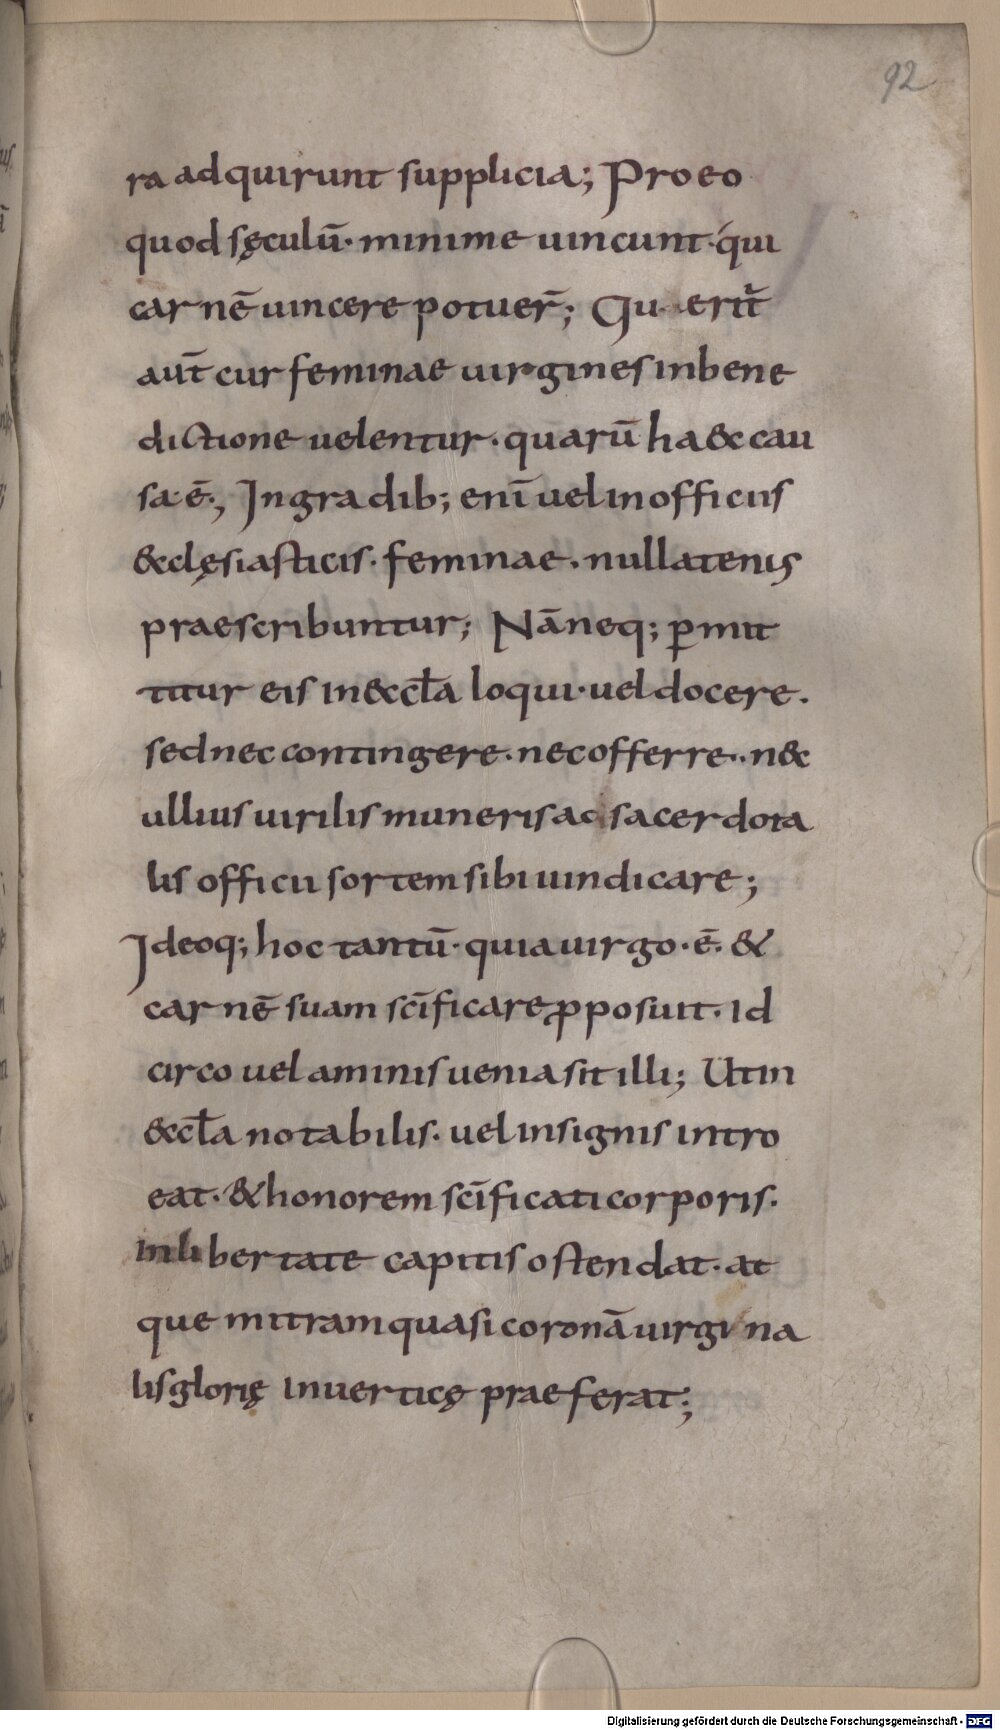 92
ra adquirunt supplicia; Pro eo
quod sęculū· minime uincunt· qui
carnē uincere potuer̄; Qu erit̄
aūt cur feminae uirgines in bene
dictione uelentur· quarū haec cau
sa· ē·, In gradib; enī uel in officiis
ecclęsiasticis· feminae· nullatenus
praescribuntur; Nā neq; ꝑmit
titur eis in eccƚa loqui· uel docere·
sed nec contingere· nec offerre· nec
ullius uirilis muneris ac sacerdota
lis officii sortem sibi uindicare;
Ideoq; hoc tantū· quia uirgo· ē· &
carnē suam scīficare ꝓposuit· Id
circo uelaminis uenia sit illi; Ut in
eccƚa notabilis· uel insignis intro
eat· & honorem scīficati corporis·
in libertate capitis ostendat· at
que mitram quasi coronā uirgina
lis glorię in uerticę praeferat;
Digitalisierung gefördert durch die Deutsche Forschungsgemeinschaft - DFG